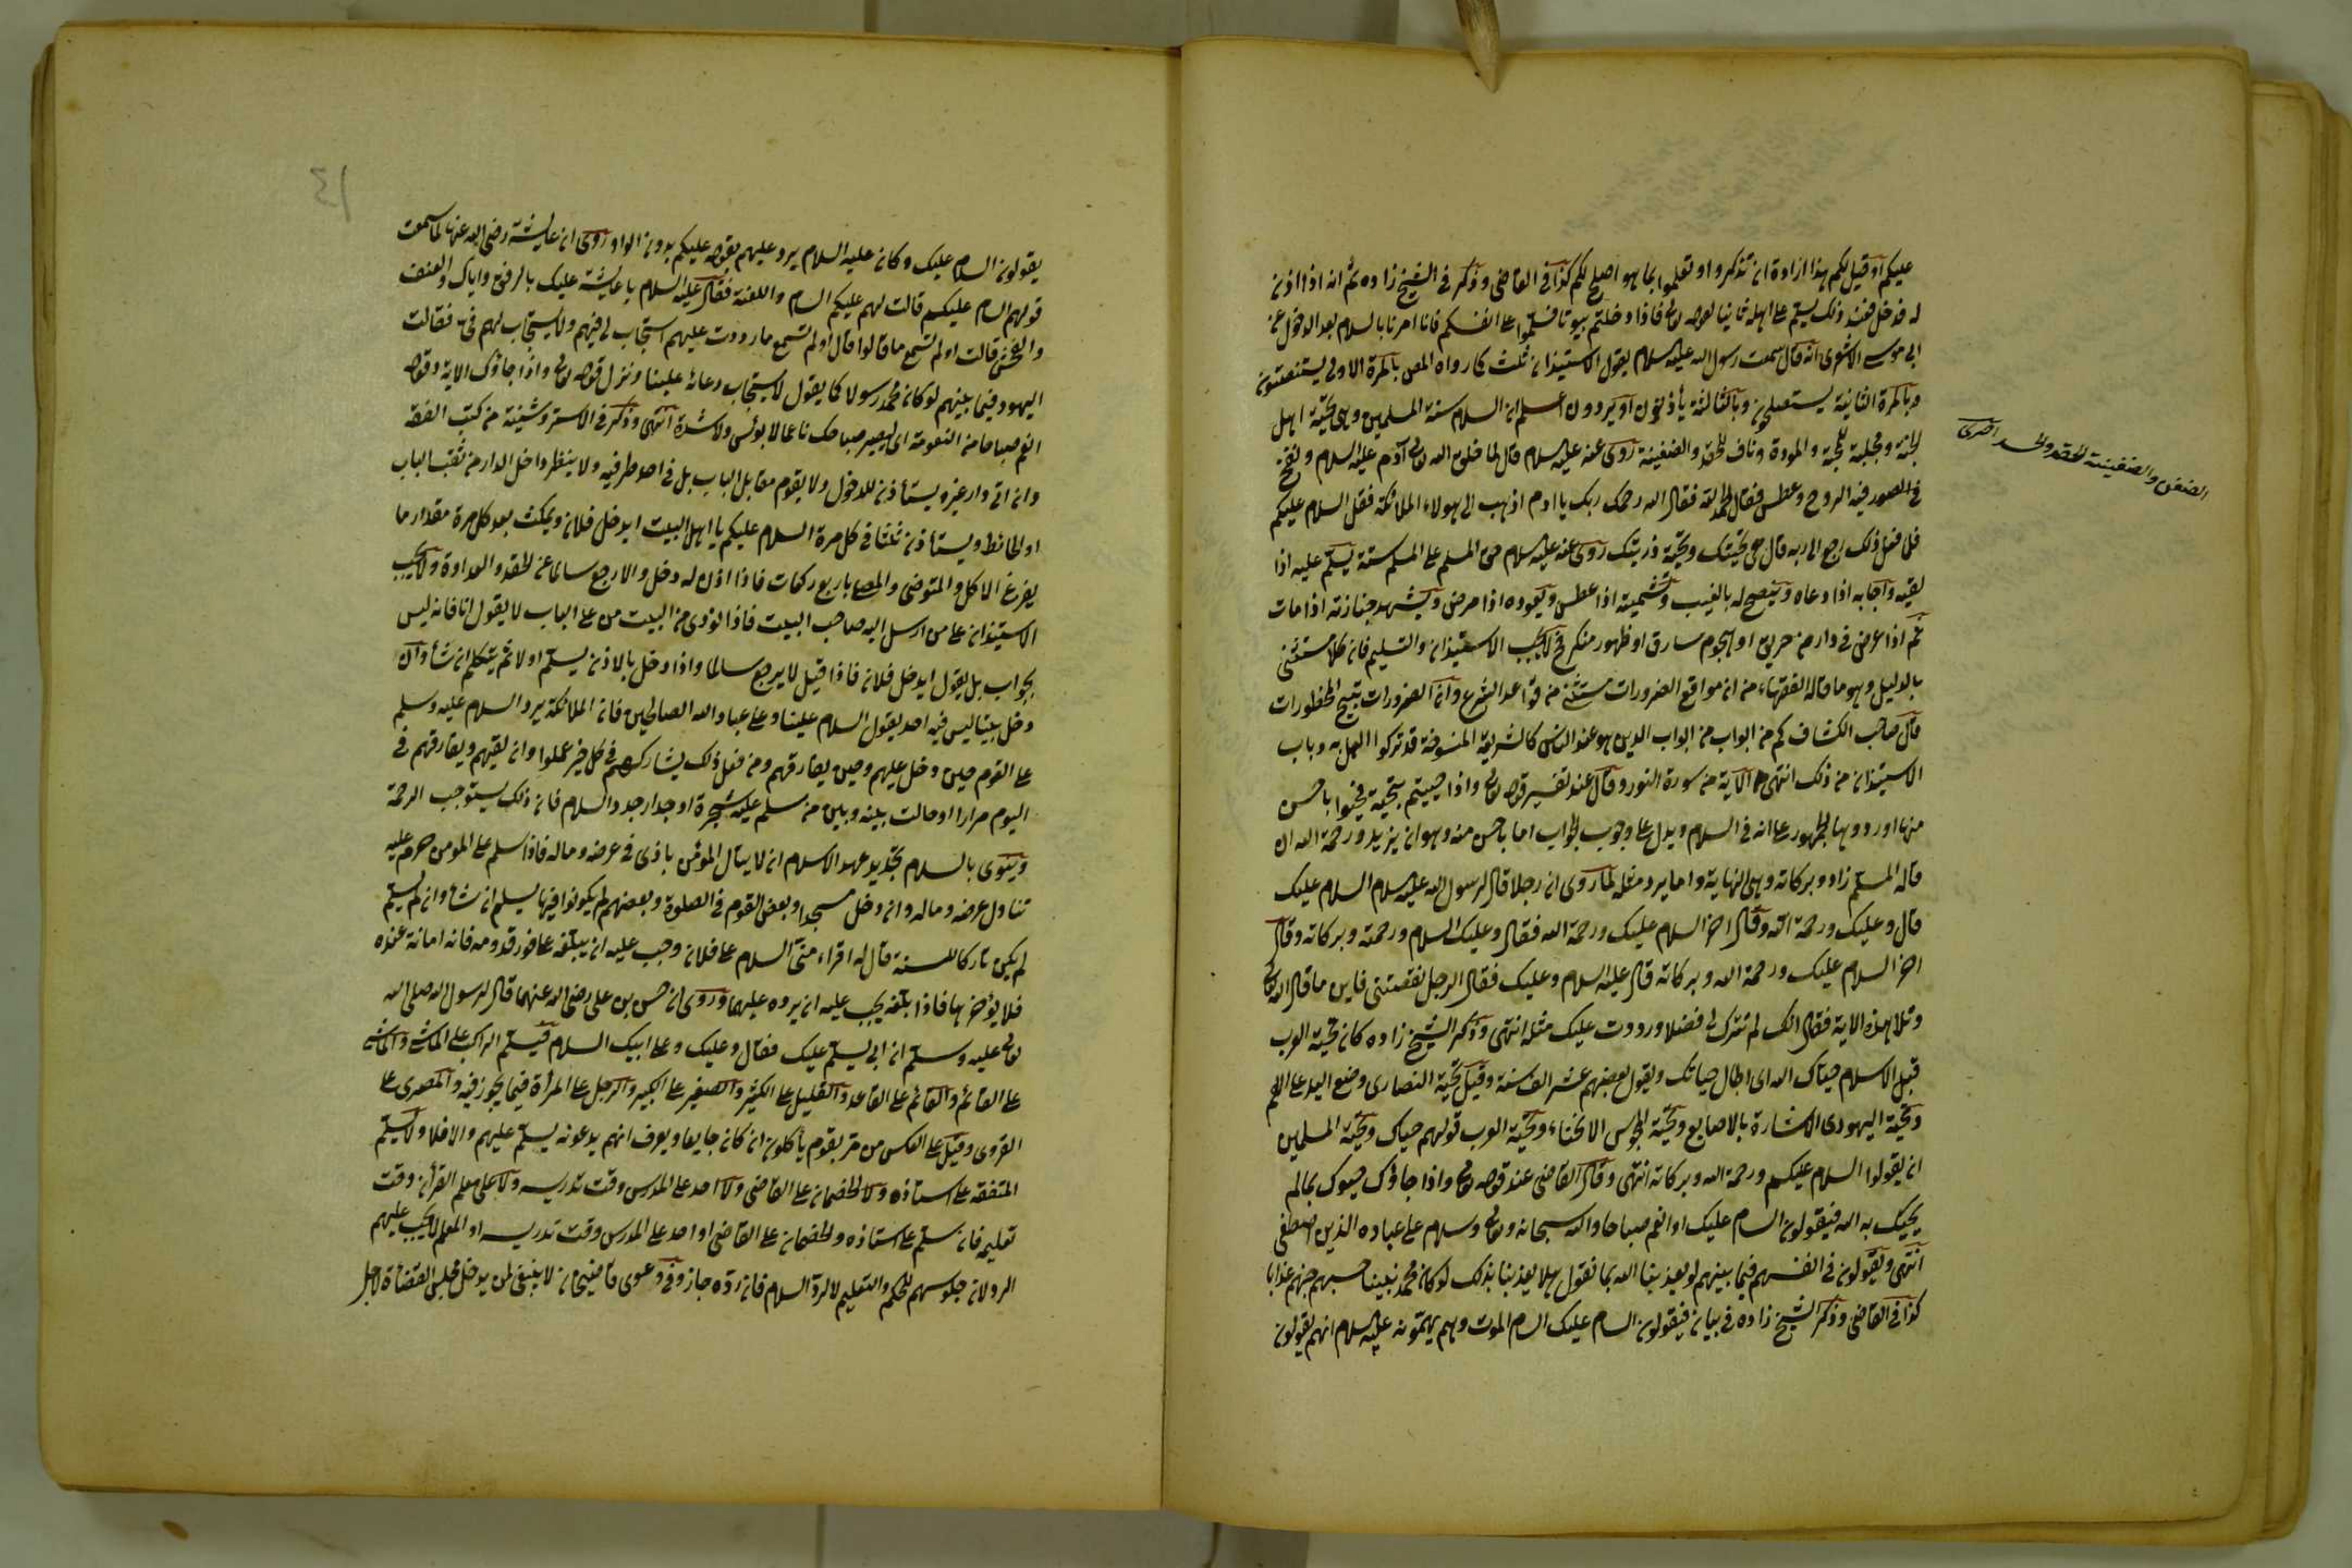 عليكم او قيل لكم هذا ارادة ان تذكروا و تعلموا بما هو اصلح لكم كذا فى القاضى وذكر فى الشيخ زاده ثم انه اذا اذن
له فدخل فعند ذلك يسلم على اهله ثانيا لقوله تعالى فاذا دخلتم بيوتا فسلموا على انفسكم فانا امرنا بالسلام بعد الدخول عن
ابى موسى الاشعرى انه قال سمعت رسول الله عليه السلام يقول الاستيذان ثلث كما رواه بالمرة الاولى يستنصتون
وبالمرة الثانية يستصلحون وبالثالثة يأذنون او يردون اعلم ان السلام سنة المسلمين وهى تحية اهل
الجنة ومجلبة للمحبة والمودة وناف للحقد والضغينة روى عنه عليه السلام قال لما خلق الله تعالى آدم عليه السلام ونفخ
فى الصور فيه الروح وعطس فقال الحمد لله فقال الله رحمك ربك يا ادم اذهب الى هولاء الملائكة فقل السلام عليكم
فلما فعل ذلك رجع الى ربه قال هى تحيتك وتحية ذريتك روى عنه عليه السلام حق المسلم على المسلم ستة يسلم عليه اذا
لقيه واجابه اذا دعاه وينصح له بالغيب وتشميته اذا عطس ويعوده اذا مرض ويشهد جنازته اذا مات
ثم اذا عرض فى دار من حريق او هجوم سارق او ظهور منكر فح لا يجب الاستيذان والتسليم فان كلا مستثنى
بالدليل وهو ما قاله الفقهاء من ان مواقع الضرورات مستثنى من قواعد الشرع وان الضرورات تبيح المحظورات
قال صاحب الكشاف كم من ابواب من ابواب الدين هو عند الناس كالشريعة المنسوخة قد تركوا العمل به وباب
الاستيذان من ذلك انتهى الاية من سورة النور وقال عند تفسير قوله تعالى واذا حييتم بتحية فحيوا باحسن
منها او ردوها الجمهور على انه فى السلام ويدل على وجوب الجواب اما باحسن منه وهو ان يزيد ورحمة الله ان
قاله المسلم زاد وبركاته وهى النهاية واما يرد مثله لما روى ان رجلا قال لرسول الله عليه السلام السلام عليك
قال وعليك ورحمة الله وقال اخر السلام عليك ورحمة الله فقال وعليك السلام ورحمته وبركاته وقال
اخر السلام عليك ورحمة الله وبركاته قال عليه السلام وعليك فقال الرجل نقصتنى فاين ما قال الله تعالى
وتلا هذه الاية فقال انك لم تترك لى فضلا ورددت عليك مثله انتهى وذكر الشيخ زاده كان تحية العرب
قبل الاسلام حياك الله اى اطال حياتك ويقول بعضهم عش الف سنة وقيل تحية النصارى وضع اليد على الفم
وتحية اليهودى الاشارة بالاصابع وتحية المجوس الانحناء وتحية العرب قولهم حياك وتحية المسلمين
ان يقولوا السلام عليكم ورحمة الله وبركاته انتهى وقال القاضى عند قوله تعالى واذا جاؤك حيوك بما لم
يحيك به الله فيقولون السام عليك او انعم صباحا والله سبحانه وتعالى وسلام على عباده الذين اصطفى
انتهى ويقولون فى انفسهم فيما بينهم لو يعذبنا الله بما نقول هلا يعذبنا بذلك لو كان محمد نبينا حسبهم جهنم عذابا
كذا فى القاضى وذكر الشيخ زاده فى بيان فيقولون السام عليك السام الموت وهم يهمونه عليه السلام انهم يقولون
الضغن والضغينة الحقد والحسد اخترى
١٤
يقولون السلام عليك وكان عليه السلام يرد عليهم بقوله عليكم بدون الواو روى ان عايشة رضى الله عنها لما سمعت
قولهم السام عليكم قالت لهم عليكم السام واللعنة فقال عليه السلام يا عايشة عليك بالرفق واياك والعنف
والفحش قالت او لم تسمع ما قالوا قال او لم تسمع ما رددت عليهم استجاب لى فيهم ولا يستجاب لهم فى فقالت
اليهود فيما بينهم لو كان محمد رسولا كما يقول لاستجاب دعائه علينا ونزل قوله تعالى واذا جاؤك الاية وقوله
انعم صباحا من النعومة اى ليصير صباحك ناعما لا بؤس ولا شدة انتهى وذكر فى الاستروشنية من كتب الفقه
وان اتى دار غيره ويستأذن للدخول ولا يقوم مقابل الباب بل فى احد طرفيه ولا ينظر داخل الدار من ثقب الباب
او الحائط ويستأذن ثلثا فى كل مرة السلام عليكم يا اهل البيت ايدخل فلان ويمكث بعد كل مرة مقدار ما
يفرغ الاكل والمتوضى والمصلى باربع ركعات فاذا اذن له دخل والا رجع سالما عن الحقد والعداوة ولا يجب
الاستيذان على من ارسل اليه صاحب البيت فاذا نودى من البيت من على الباب لا يقول انا فانه ليس
بجواب بل يقول ايدخل فلان فاذا قيل لا يرجع سالما واذا دخل بالاذن يسلم اولا ثم يتكلم ان شأ وان
دخل بيتا ليس فيه احد يقول السلام علينا وعلى عباد الله الصالحين فان الملائكة يرد السلام عليه وسلم
على القوم حين دخل عليهم وحين يفارقهم ومن فعل ذلك يشاركهم فى كل خير عملوا وان لقيهم ويفارقهم فى
اليوم مرارا او حالت بينه وبين من سلم عليه شجرة او جدار جدد السلام فان ذلك يستوجب الرحمة
وينوى بالسلام تجديد عهد الاسلام ان لا ينال المؤمن باذى فى عرضه وماله فاذا سلم على المومن حرم عليه
تناول عرضه وماله وان دخل مسجدا وبعض القوم فى الصلوة وبعضهم لم يكونوا فيها يسلم ان شأ وان لم يسلم
لم يكن تاركا للسنة قال له اقراء منى السلام على فلان وجب عليه ان يبلغه على فور قدومه فانه امانة عنده
فلا يؤخرها فاذا بلغه يجب عليه ان يرده عليهما وروى ان حسن بن على رضى الله عنهما قال لرسول الله صلى الله
تعالى عليه وسلم ان ابى يسلم عليك فقال وعليك وعلى ابيك السلام فيسلم الراكب على الماشى والماشى
على القائم والقائم على القاعد والقليل على الكثير والصغير على الكبير والرجل على المرأة فيما يجوز فيه والمصرى على
القروى وقيل على العكس من مر بقوم يأكلون ان كان جايعا ويعرف انهم يدعونه يسلم عليهم والا فلا ولا يسلم
المتفقه على استاذه ولا الخصمان على القاضى ولا احد على المدرس وقت تدريسه ولا على معلم القرأن وقت
تعليمه فان سلم على استاذه والخصمان على القاضى او احد على المدرس وقت تدريسه او المعلم لا يجب عليهم
الرد لان جلوسهم للحكم والتعليم لا لرد السلام فان رده جاز وفى دعوى قاضيخان لا ينبغى لمن يدخل مجلس القضاة لاجل